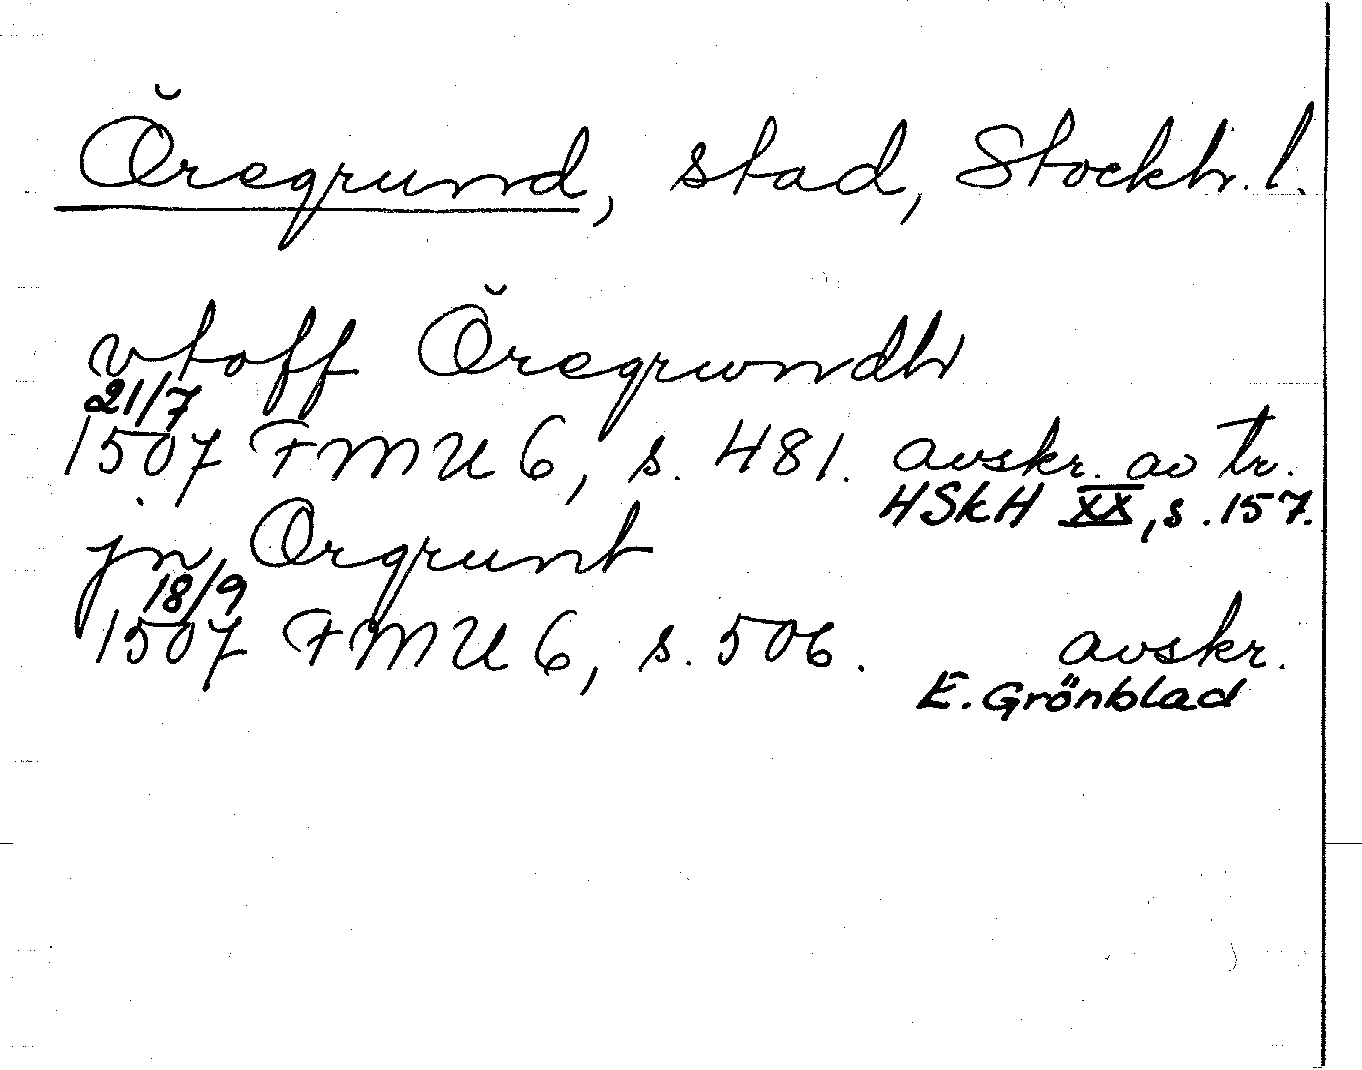 Öregrund, stad, Stockh. l.
vtoff Öregrwndh
21/7
1507 FMU 6, s. 481. avskr. av tr.
HSkH XX, s. 157.
jn Orgrunt
18/9
1507 FMU 6, s. 506. avskr.
E. Grönblad